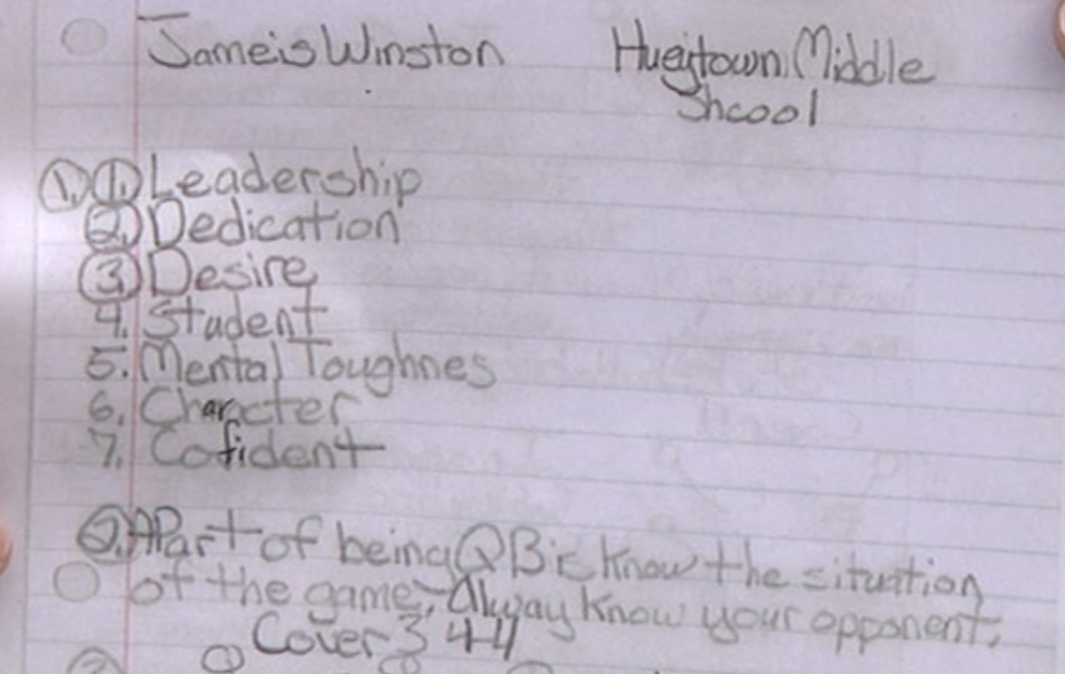 Jameis Winston Hueytown Middle
Shcool
1. 1. Leadership
2. Dedication
3. Desire
4. Student
5. Mental Toughnes
6. Character
7. Cofident
2. A Part of being QB is know the situation
of the game, Alway know your opponent,
Cover 3 44